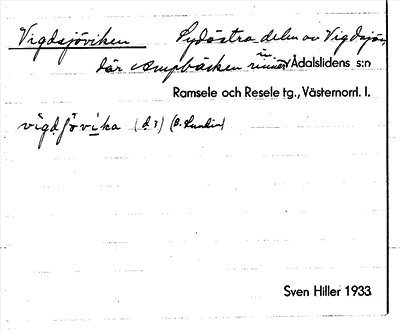 Vigdsjöviken Sydöstra delen av Vigdsjön,
där Ampbäcken rinner in Ådalslidens s:n
Ramsele och Resele tg., Västernorrl. l.
vìgdʃövika (d. ?) (O. Lundin)
Sven Hiller 1933